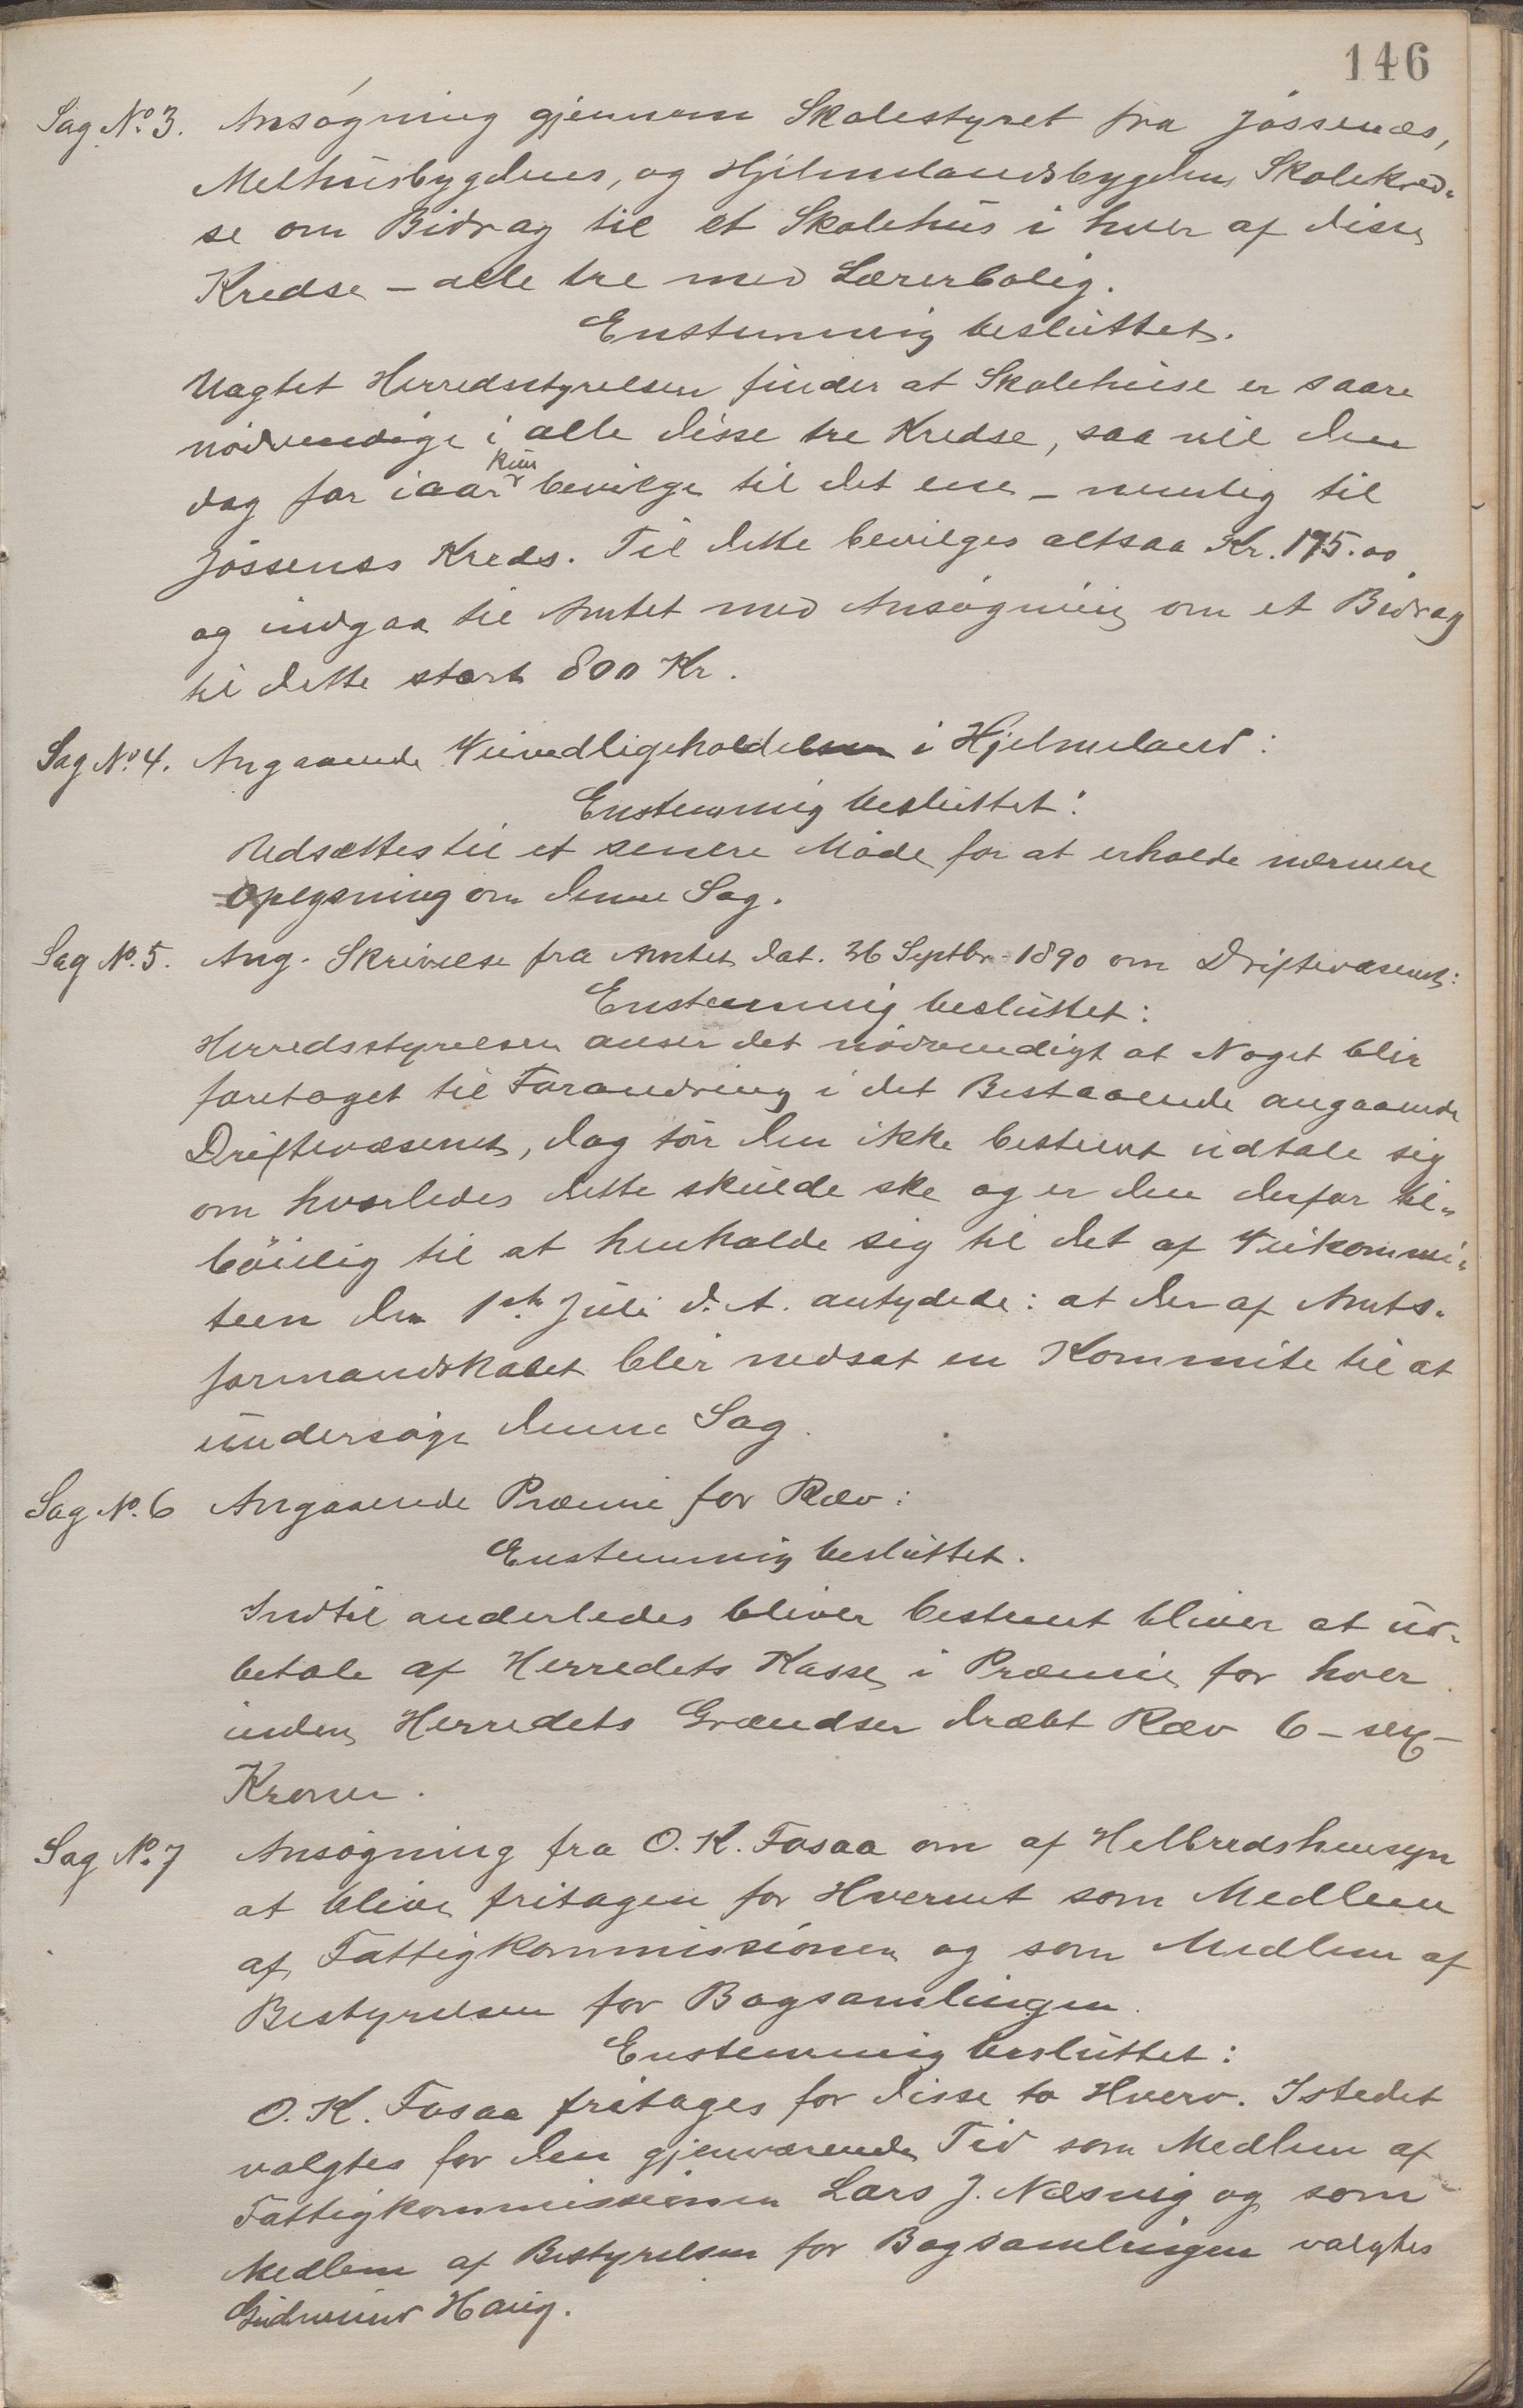 146
Sag No. 3. Ansøgning gjennem Skolestyret fra Jøssenæs,
Melhusbygdens, og Hjelmelandsbygdens Skolekred-
se om Bidrag til et Skolehus i hver af disse
Kredse – alle tre med Lærerbolig.
Enstemmig besluttet.
Uagtet Herredsstyrelsen finder at Skolehuse er saare
nødvendige i alle disse tre Kredse, saa vil den
dog for iaar kun bevilge til det ene – nemlig til
Jøssenes Kreds. Til dette bevilges altsaa Kr. 175.00
og indgaa til Amtet med Ansøgning om et Bidrag
til dette stort 800 Kr.
Sag No. 4. Angaaende Veivedligeholdelsen i Hjelmeland:
Enstemmig besluttet:
Udsættes til et senere Møde for at erholde nærmere
Oplysning om denne Sag.
Sag No. 5. Ang. Skrivelse fra Amtet dat. 26 Septbr. 1890 om Driftevæsenet:
Enstemmig besluttet:
Herredsstyrelsen anser det nødvendigt at Noget blir
foretaget til Forandring i det Bestaaende angaaende
Driftevæsenet, dog tør den ikke bestemt udtale sig
om hvorledes dette skulde ske og er den derfor til-
bøielig til at henholde sig til det af Veikommi-
teen den 1ste Juli d. A. antydede: at der af Amts-
formandskabet blir nedsat en Kommite til at
undersøge denne Sag.
Sag No. 6 Angaaende Præmie for Ræv:
Enstemmig besluttet.
Indtil anderledes bliver bestemt bliver at ud-
betale af Herredets Kasse i Præmie for hver
inden Herredets Grændser dræbt Ræv 6 – sex –
Kroner.
Sag No. 7 Ansøgning fra O. K. Fosaa om af Helbredshensyn
at blive fritagen for Hvervet som Medlem
af Fattigkommissionen og som Medlem af
Bestyrelsen for Bogsamlingen.
Enstemmig besluttet:
O. K. Fosaa fritages for disse to Hverv. Istedet
valgtes for den gjenværende Tid som Medlem af
Fattigkommissionen Lars J. Næsvig og som
Medlem af Bestyrelsen for Bogsamlingen valgtes
Gudmund Haug.